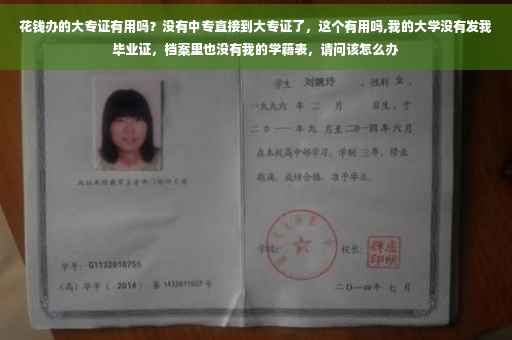 花钱办的大专证有用吗？没有中专直接到大专证了，这个有用吗,我的大学没有发我
毕业证，档案里也没有我的学籍表，请问该怎么办
学生 刘婉玲 ，性别 女 ，
一九九六 年 二 月 日生，于
二〇一一年九 月至二〇一四年六月
在本校高中部学习，学制 三年，修业
期满，成绩合格，准予毕业。
学校： 校长：
学号：G1132010755
（高）毕字（ 2014 ）第 1432011007 号
二〇一四年 七 月